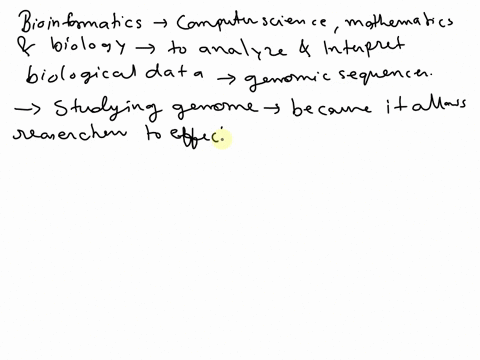 Bioinformatics → Computer science, mathematics
& biology → to analyze & Interpret
biological data → genomic sequences.
→ Studying genome → because it allows
researchers to effec